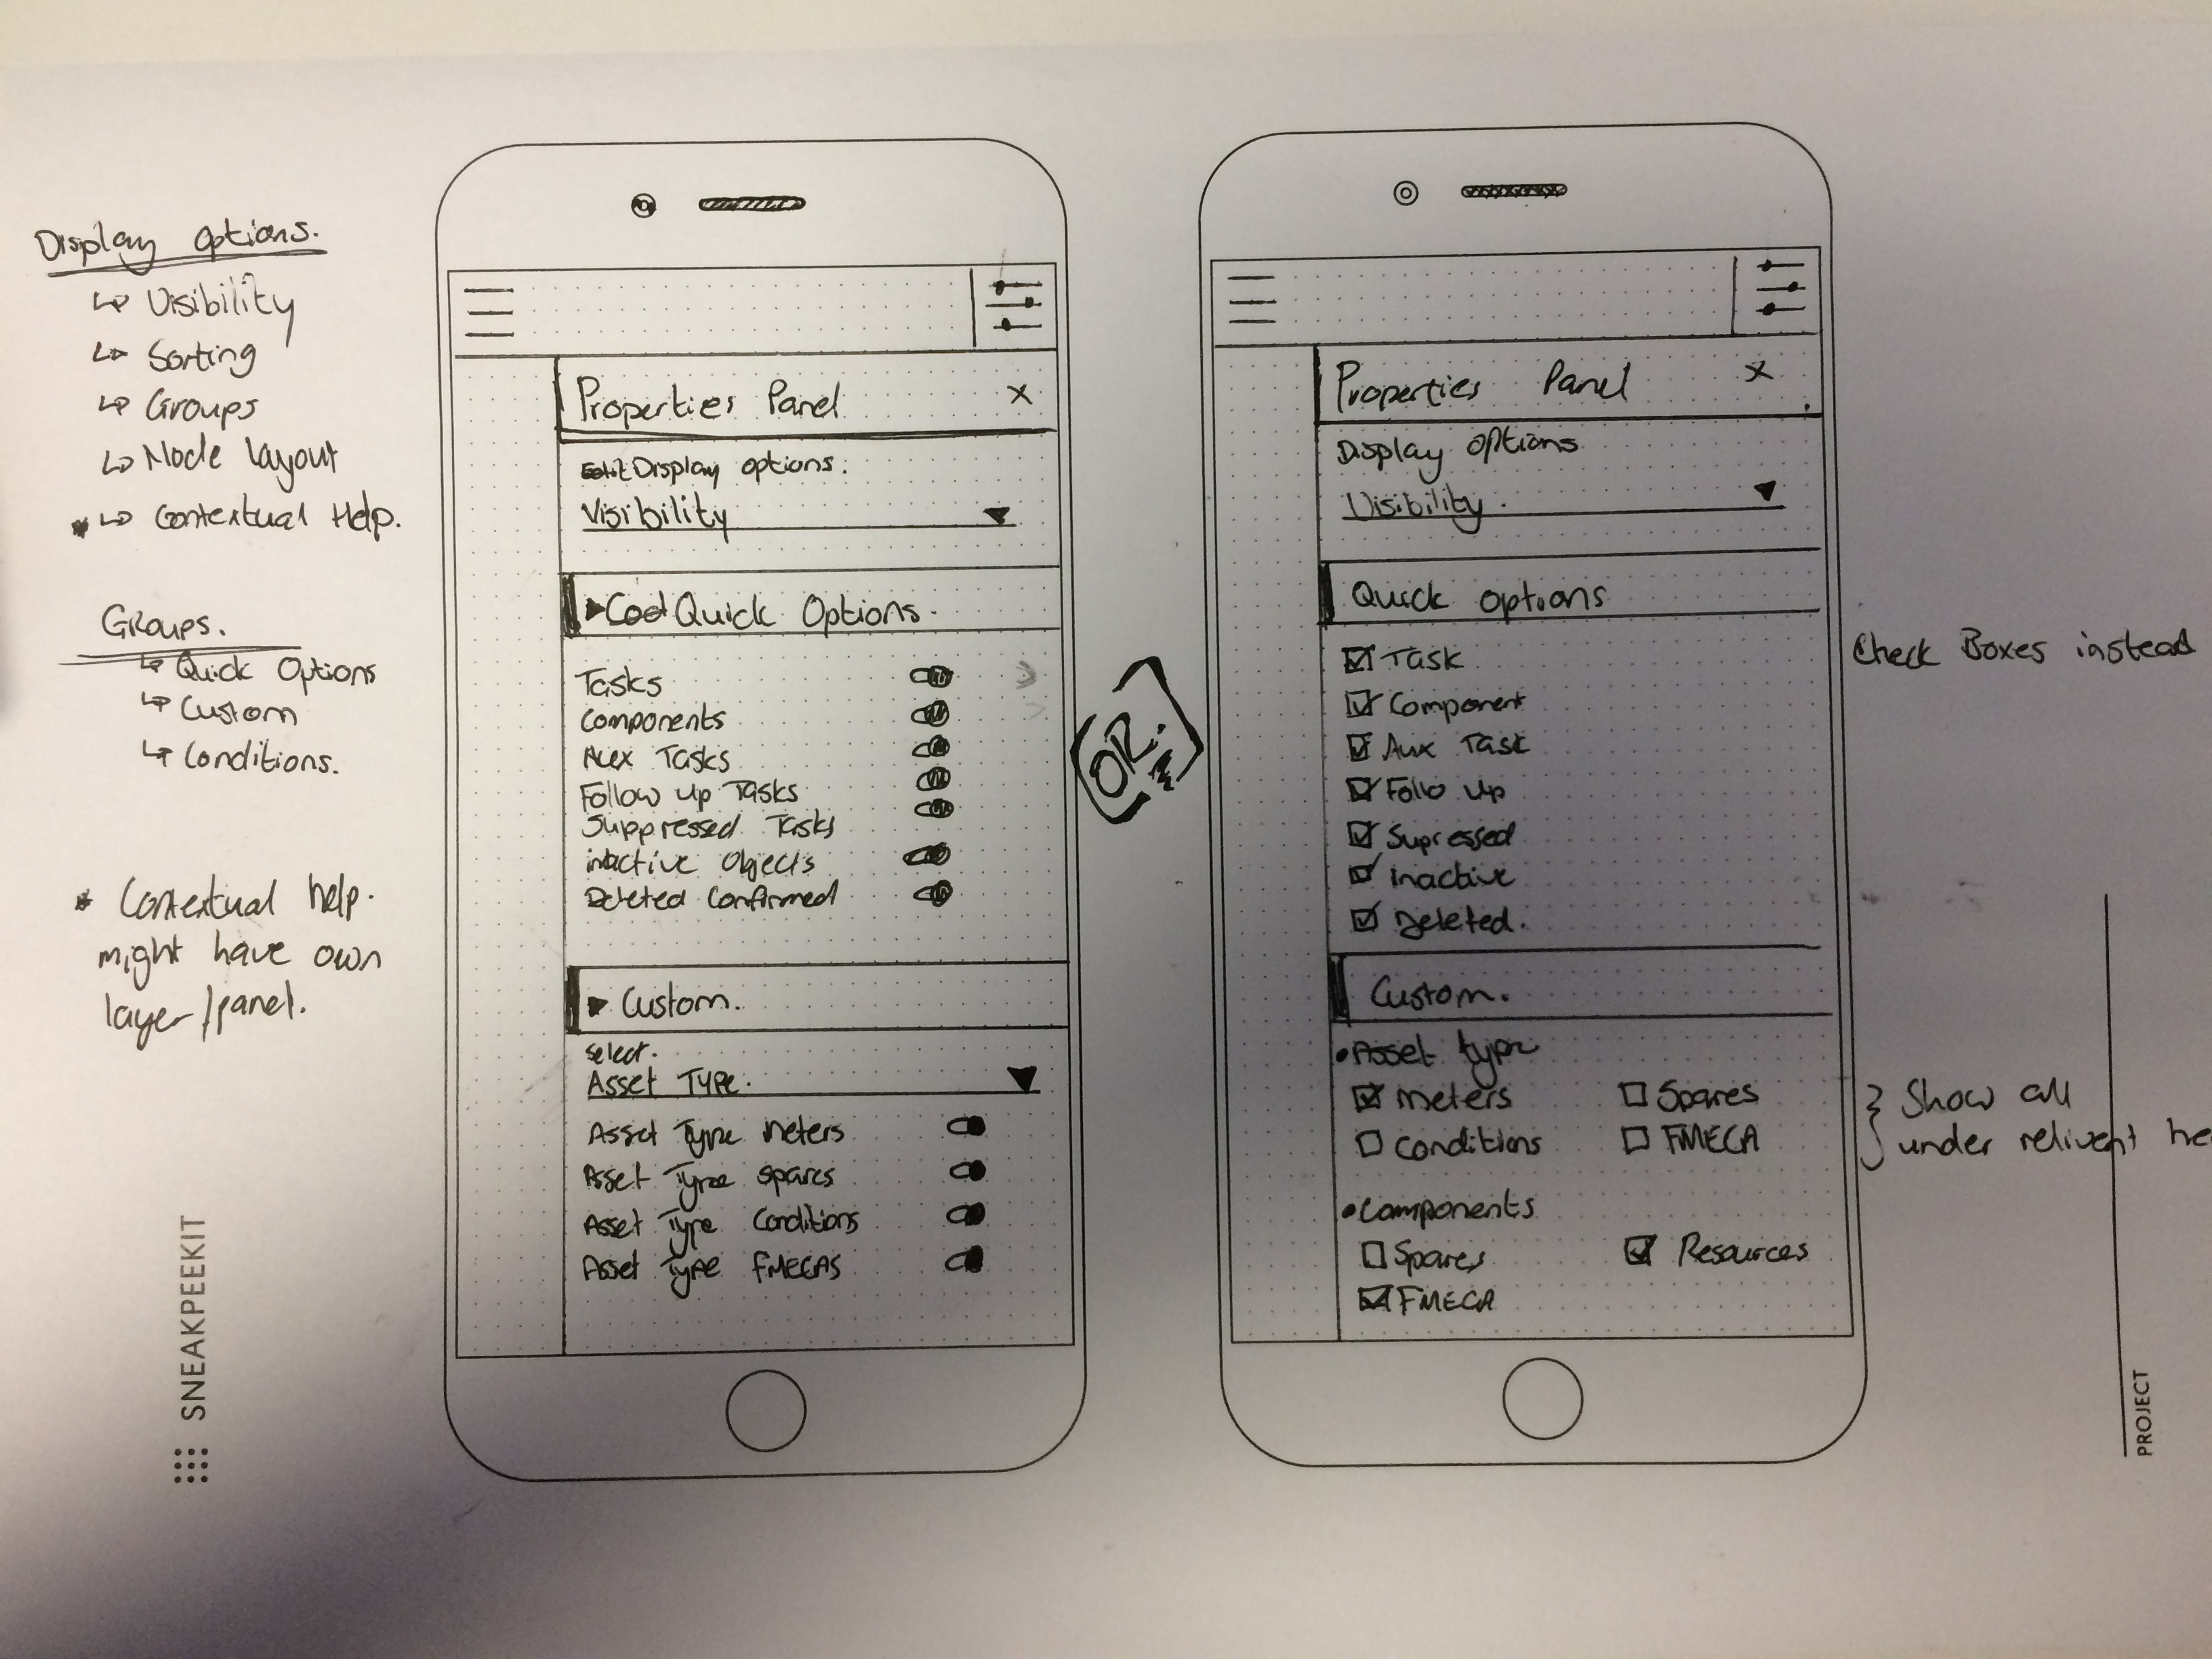 Display Options.
↳ Visibility
↳ Sorting
↳ Groups
↳ Node layout
* ↳ Contextual Help.
Groups.
↳ Quick Options
↳ Custom
↳ Conditions.
* Contextual help.
might have own
layer/panel.
SNEAKPEEKIT
Properties Panel X
Edit Display options.
Visibility
Quick Options.
Tasks
Components
Aux Tasks
Follow up Tasks
Suppressed Tasks
inactive objects
Deleted confirmed
Custom.
select.
Asset Type.
Asset Type meters
Asset Type spares
Asset Type Conditions
Asset Type FMECAS
OR.
Properties Panel X
Display options
Visibility.
Quick options
☑ Task
☑ Component
☑ Aux Task
☑ Follo up
☑ Supressed
☑ inactive
☑ Deleted.
Custom.
• Asset type
☑ meters ☐ Spares
☐ Conditions ☐ FMECA
• Components
☐ Spares ☑ Resources
☑ FMECA
Check Boxes instead
} Show all
} under relivent he
PROJECT